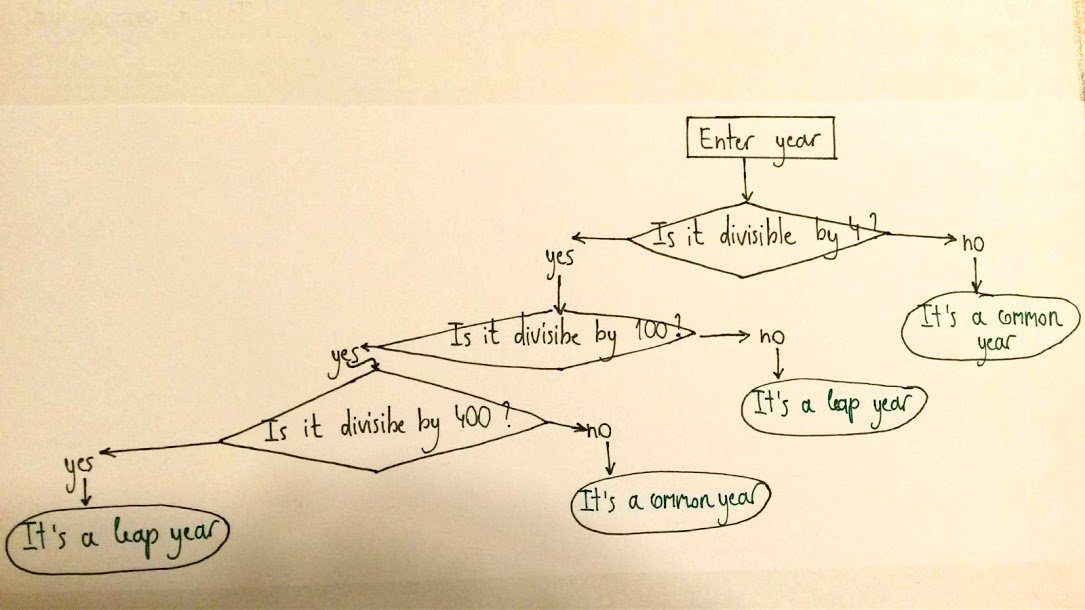 Enter year
Is it divisible by 4?
yes
no
It's a common
year
Is it divisibe by 100?
yes
no
It's a leap year
Is it divisibe by 400?
yes
no
It's a leap year
It's a common year